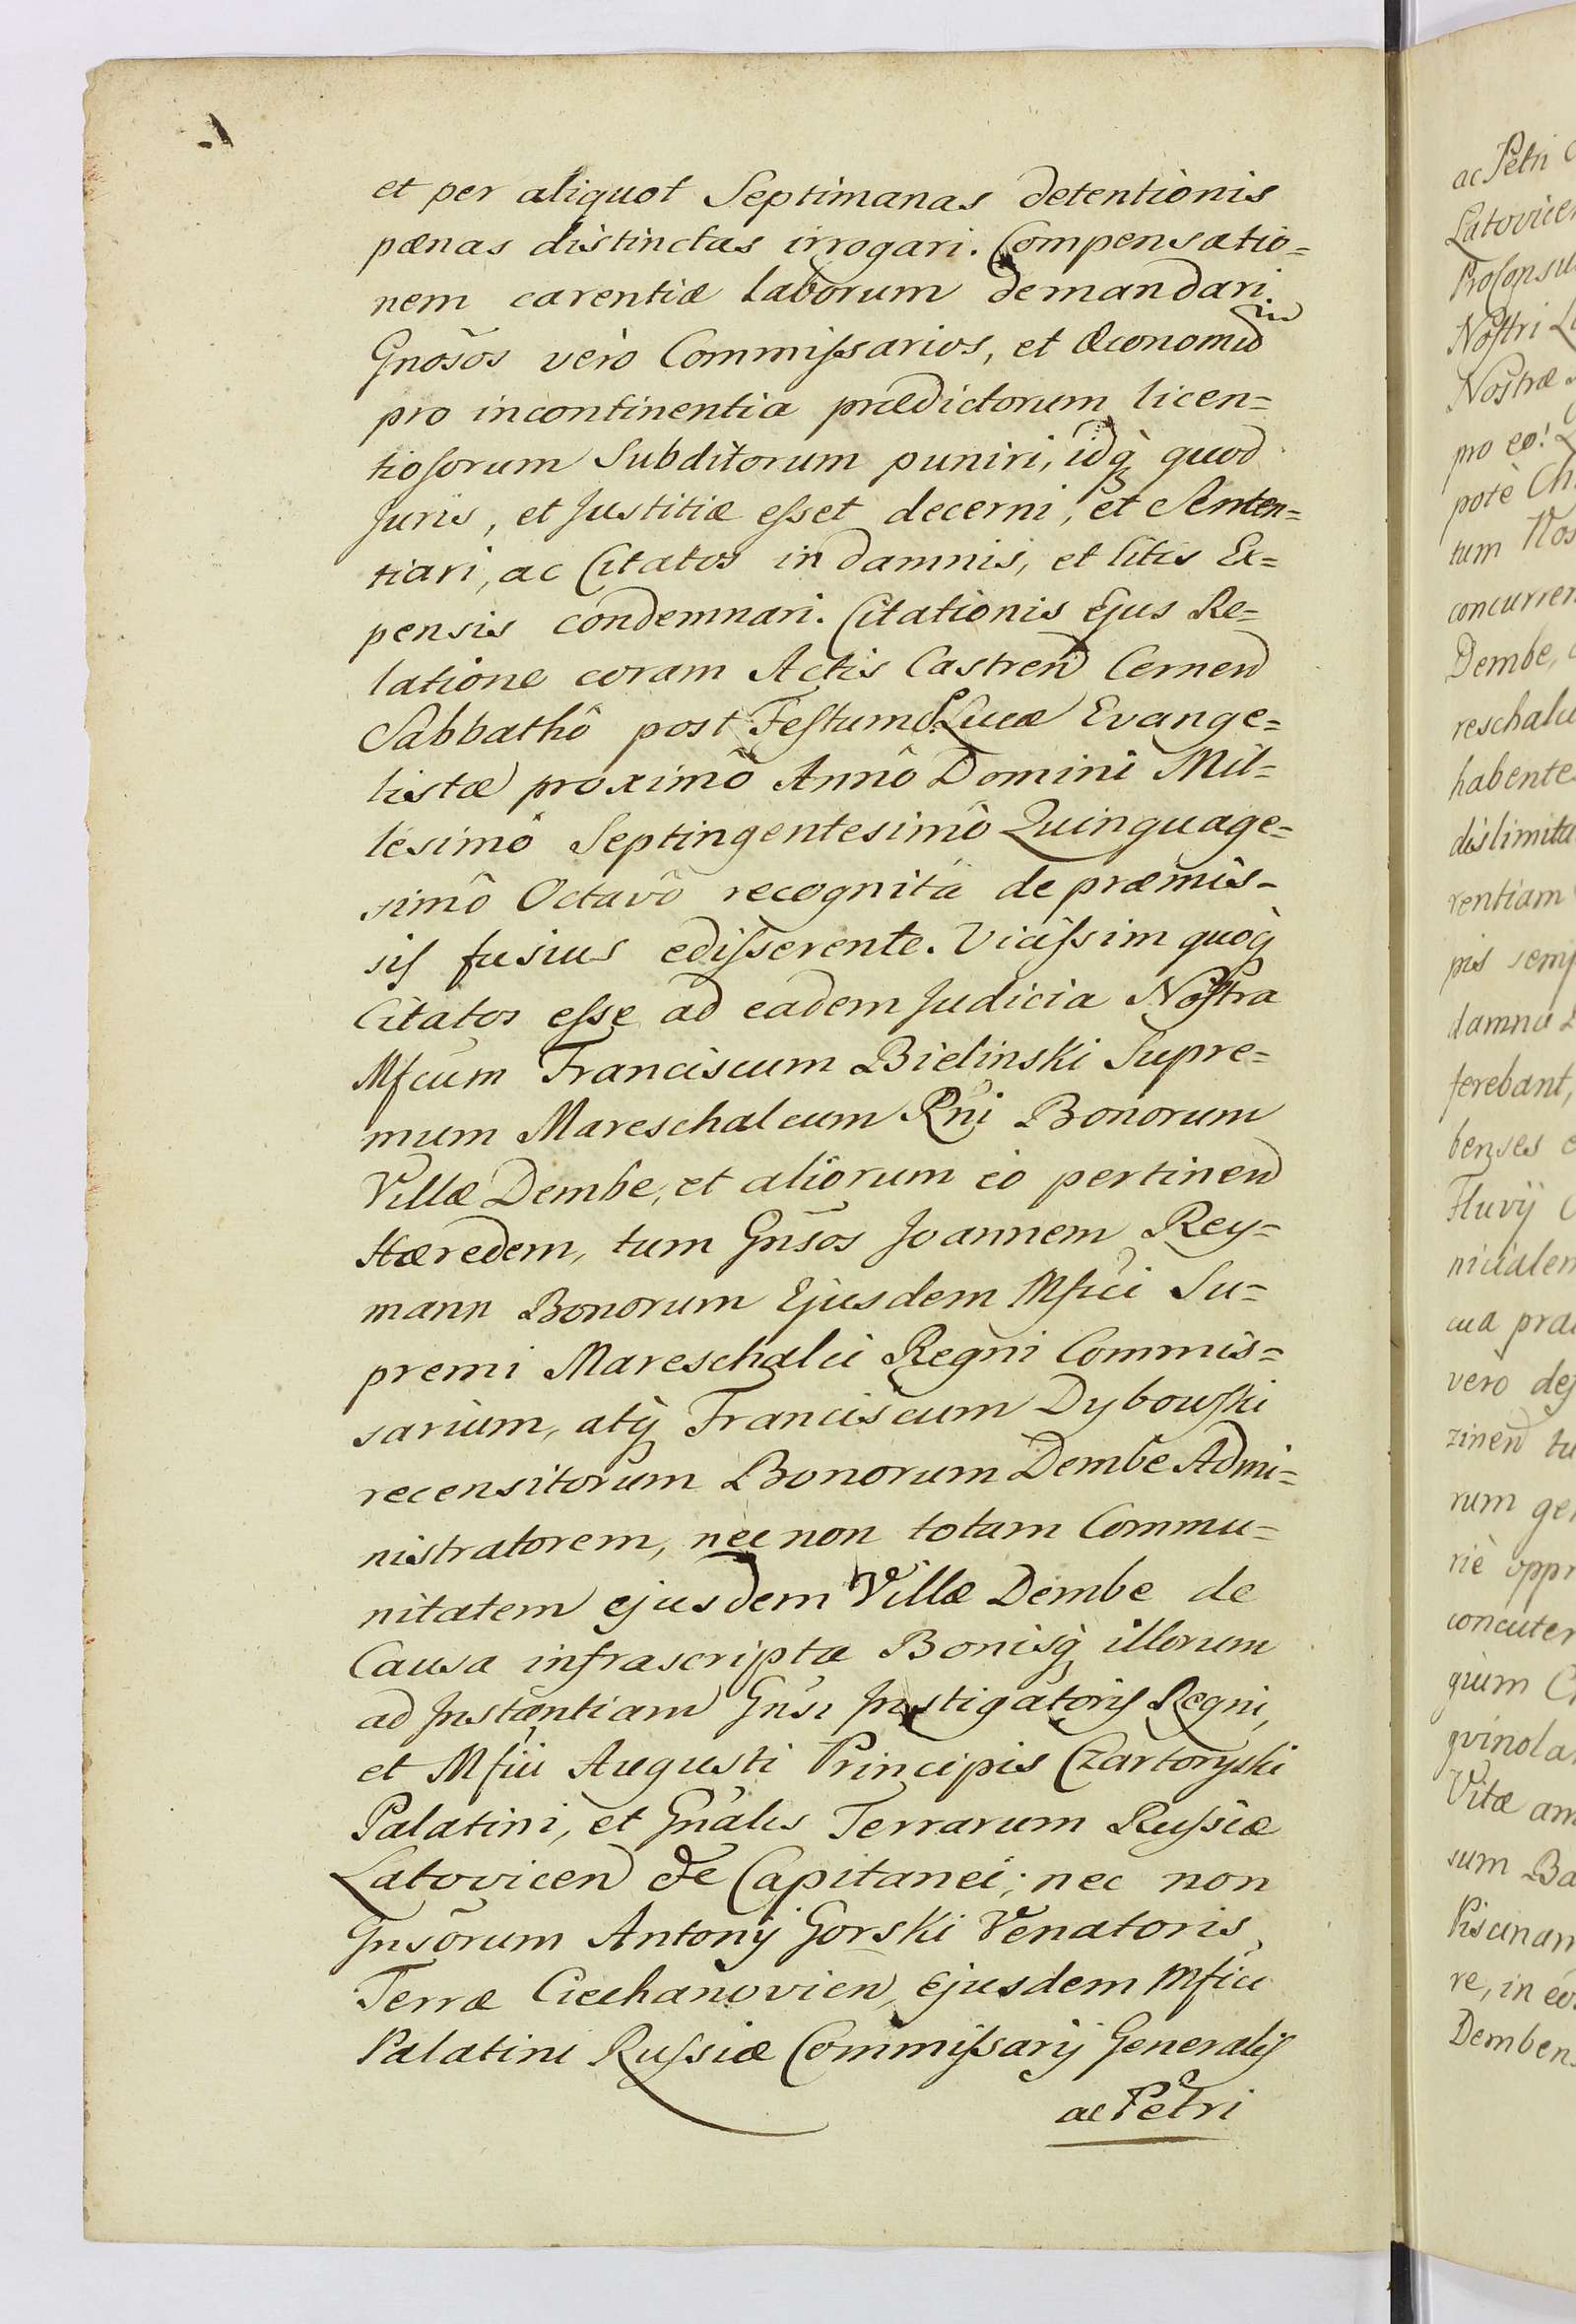 et per aliquot Septimanas detentionis
pænas distinctas irrogari. Compensatio=
nem carentiæ laborum demandari.
Gnosõs verò Commiſsarios, et Œconomũ
pro incontinentia prædictorum licen=
tioſorum Subditorum puniri, idq̀ quod
Juris, et Justitiæ eſset decerni, et Senten=
tiari, ac Citatos in damnis, et litis Ex=
pensis condemnari. Citationis Ejus Re=
latione coram Actis Castren Cernen
Sabbathô post Feſtum S. Lucæ Evange=
listæ proximô Annô Domini Mil=
lesimô Septingentesimô Quinquage=
simô Octavô recognitâ de præmis=
siſ fusius ediſserente. Viciſsim quoq̀
Citatos eſse ad eadem Judicia Noſtra
Mfcum Franciscum Bielinski Supre=
mum Mareschalcum Rñi Bonorum
Villæ Dembe, et aliorum eò pertinen
Hæredem, tum Gnsõs Joannem Rey=
mann Bonorum Ejusdem Mfici Su=
premi Mareschalci Regni Commis=
sarium, atq̀ Franciscum Dybowſki
recensitorum Bonorum Dembe Admi=
nistratorem, nec non totam Commu=
nitatem ejusdem Villæ Dembe de
Causa infrascripta Bonisq̀ illorum
ad Instantiam Gnsi Instigatoriſ Regni,
et Mfici Augusti Principis Czartoryſki
Palatini, et Gnãlis Terrarum Ruſsiæ
Latovicen &c Capitanei; nec non
Gnsõrum Antonij Gorski Venatoris
Terræ Ciechanovien, Ejusdem Mfici
Palatini Ruſsiæ Commiſsarij Generaliſ
ac Petri
ac Petri
Nostri
Nostræ
pro eo!
potè
tum Nos
Dembe,
vero
rum
Vitæ
sum